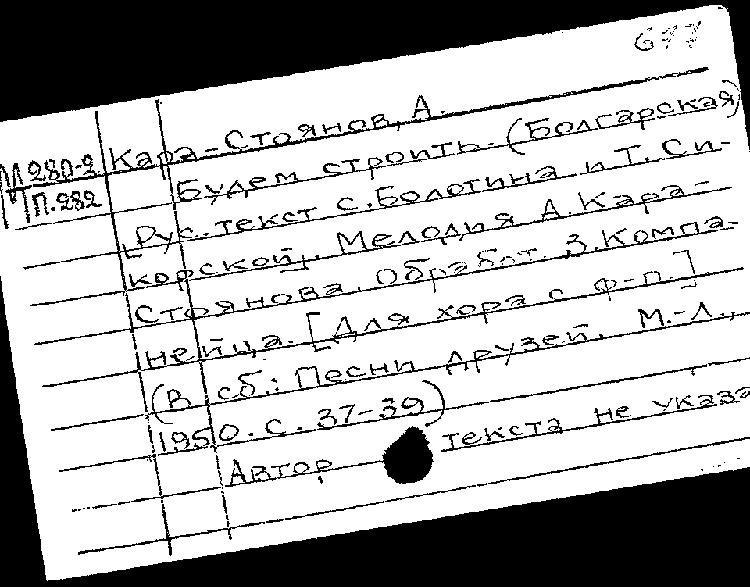 677
Кара-Стоянов, А.
М 280-2
П.282
Будем строить. (Болгарская)
Рус. текст С. Болотина и Т. Си-
корской. Мелодия А. Кара-
Стоянова. Обработ. З. Компа-
нейца. [Для хора с ф-п.]
(В сб.: Песни друзей. М.-Л.,
1950. с. 37-39)
Автор текста не указа